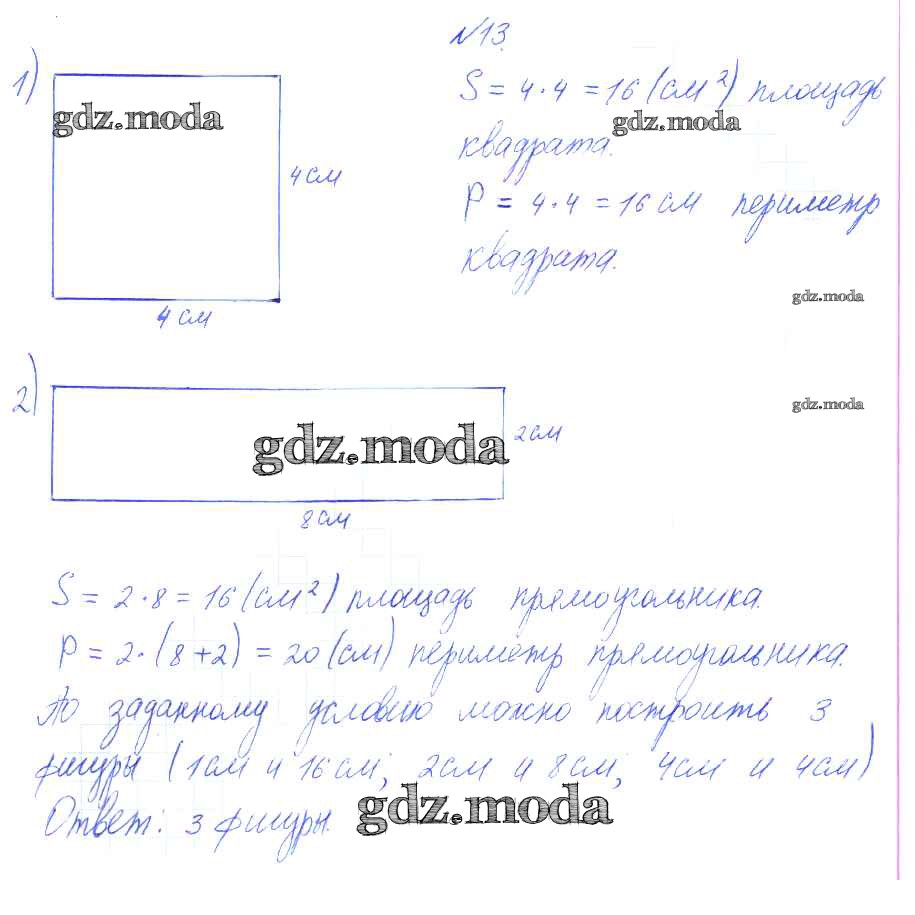 №13.
1)
S = 4 · 4 = 16 (см²) площадь
gdz.moda
gdz.moda
квадрата.
4 см
P = 4 · 4 = 16 см периметр
квадрата.
gdz.moda
4 см
2)
gdz.moda
gdz.moda
2 см
8 см
S = 2 · 8 = 16 (см²) площадь прямоугольника.
P = 2 · (8 + 2) = 20 (см) периметр прямоугольника.
По заданному условию можно построить 3
фигуры (1 см и 16 см; 2 см и 8 см; 4 см и 4 см)
Ответ: 3 фигуры.
gdz.moda